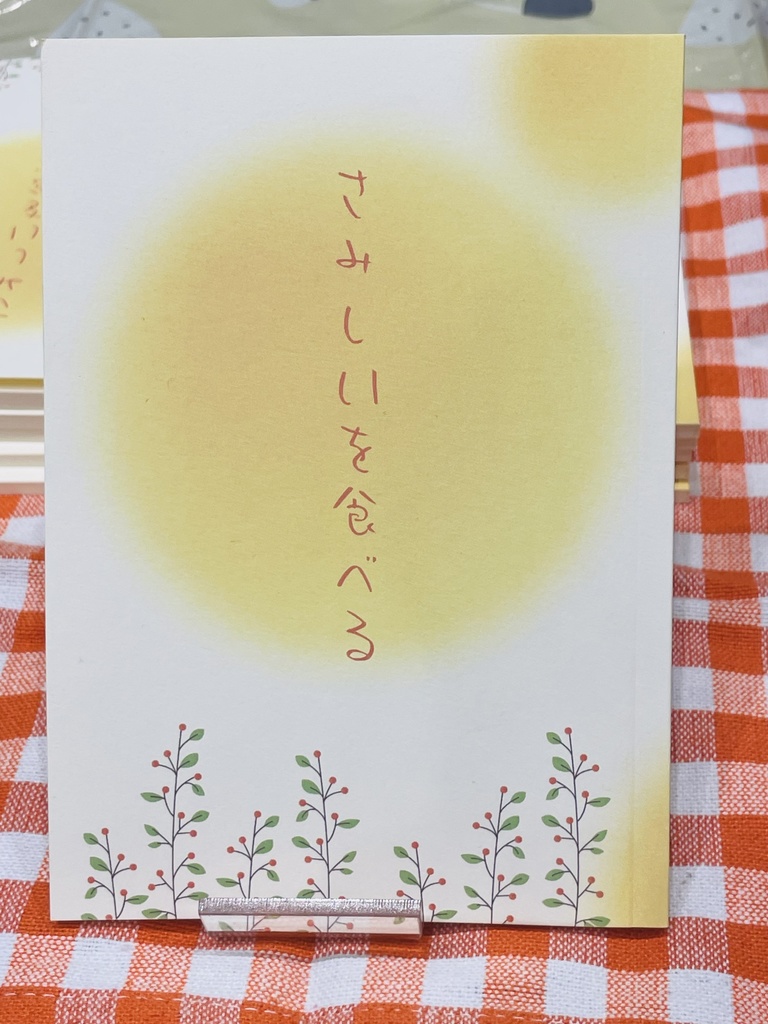 さみしいを食べる